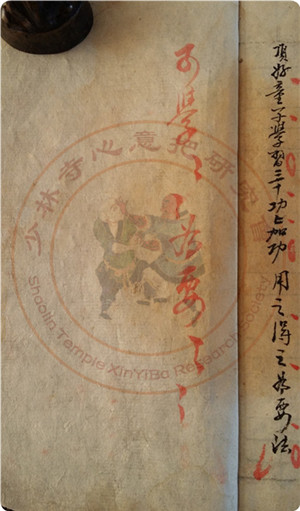 頂好童子學習三十功上加功 用之得之為要法
學 為要
少林寺心意把研究
Shaolin Temple XinYiBa Research Society